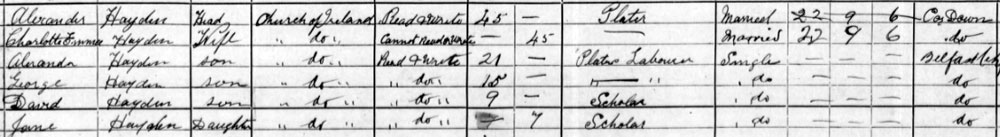 Alexander Hayden Head Church of Ireland Read & write 45 — Slater Married 22 9 6 Co. Down
Charlotte Emma Hayden Wife " do " Cannot Read & write — 45 — Married 22 9 6 do
Alexander Hayden son " do " Read & write 21 — Platers Labourer Single — — — Belfast City
George Hayden son " do " " do " 15 — — " " do — — — do
David Hayden son " do " " do " 9 — Scholar " do — — — do
Jane Hayden Daughter " do " " do " 7 Scholar " do — — — do